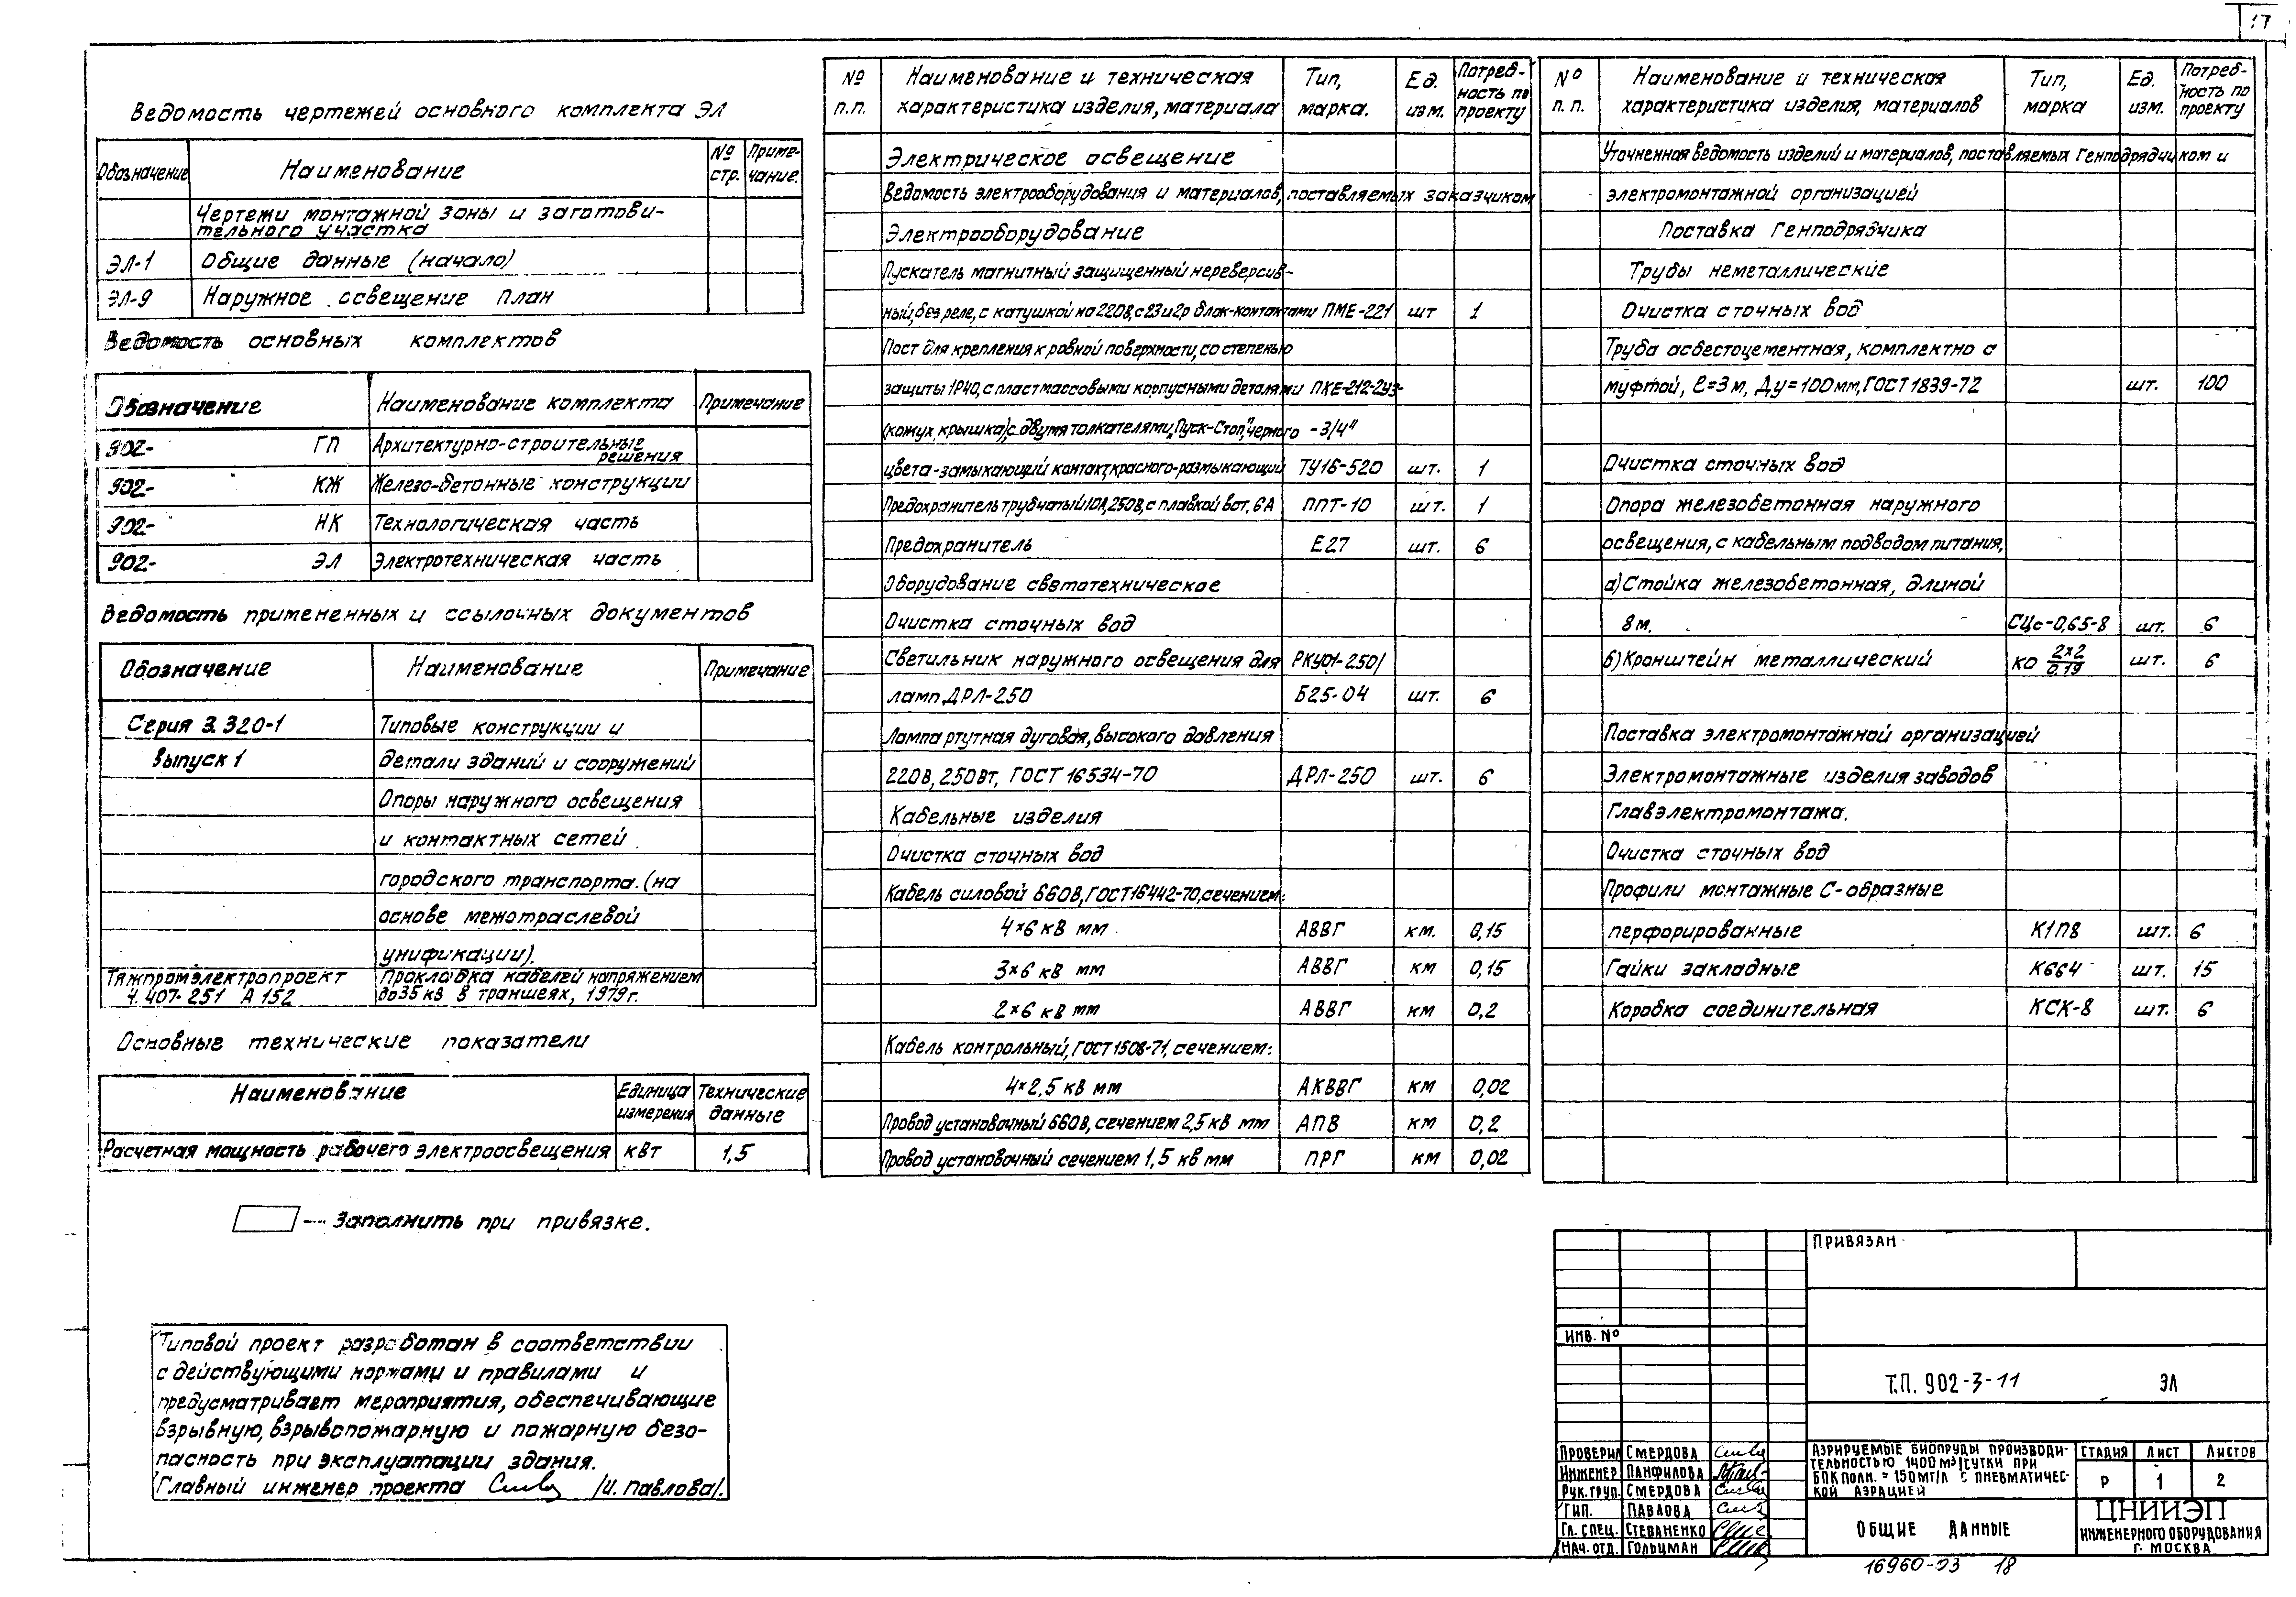 17
Ведомость чертежей основного комплекта ЭЛ
Обозначение Наименование № стр. Приме-чание.
Чертежи монтажной зоны и заготови-
тельного участка
ЭЛ-1 Общие данные (начало)
ЭЛ-9 Наружное освещение план
Ведомость основных комплектов
Обозначение Наименование комплекта Примечание
902- ГП Архитектурно-строительные
решения
902- КЖ Железо-бетонные конструкции
902- НК Технологическая часть
902- ЭЛ Электротехническая часть
Ведомость примененных и ссылочных документов
Обозначение Наименование Примечание
Серия 3.320-1 Типовые конструкции и
Выпуск 1 детали зданий и сооружений
Опоры наружного освещения
и контактных сетей
городского транспорта. (на
основе межотраслевой
унификации).
Тяжпромэлектропроект Прокладка кабелей напряжением
4.407-251 А 152 до 35 кв в траншеях, 1979г.
Основные технические показатели
Наименование Единица измерения Технические данные
Расчетная мощность рабочего электроосвещения кВт 1,5
— Заполнить при привязке.
Типовой проект разработан в соответствии
с действующими нормами и правилами и
предусматривает мероприятия, обеспечивающие
взрывную, взрывопожарную и пожарную безо-
пасность при эксплуатации здания.
Главный инженер проекта /И. Павлова/.
№ Наименование и техническая Тип, Ед. Потреб-
ность по
п.п. характеристика изделия, материала марка. изм. проекту
Электрическое освещение
Ведомость электрооборудования и материалов, поставляемых заказчиком
Электрооборудование
Пускатель магнитный защищенный нереверсив-
ный, без реле, с катушкой на 220В, с 23 и 2р блок-контактами ПМЕ-221 шт 1
Пост для крепления к ровной поверхности, со степенью
защиты 1Р40, с пластмассовыми корпусными деталями ПКЕ-212-2У3-
(кожух, крышка), с двумя толкателями „Пуск-Стоп", черного -3/4"
цвета-замыкающий контакт, красного-размыкающий ТУ16-520 шт. 1
Предохранитель трубчатый 10А, 250В, с плавкой вст. 6А ППТ-10 шт. 1
Предохранитель Е27 шт. 6
Оборудование светотехническое
Очистка сточных вод
Светильник наружного освещения для РКУ01-250/
ламп ДРЛ-250 Б25-04 шт. 6
Лампа ртутная дуговая, высокого давления
220В, 250Вт, ГОСТ 16534-70 ДРЛ-250 шт. 6
Кабельные изделия
Очистка сточных вод
Кабель силовой 660В, ГОСТ 16442-70, сечением:
4×6 кв мм АВВГ км. 0,15
3×6 кв мм АВВГ км 0,15
2×6 кв мм АВВГ км 0,2
Кабель контрольный, ГОСТ 1508-71, сечением:
4×2,5 кв мм АКВВГ км 0,02
Провод установочный 660В, сечением 2,5 кв мм АПВ км 0,2
Провод установочный сечением 1,5 кв мм ПРГ км 0,02
№ Наименование и техническая Тип, Ед. Потреб-
ность по
п.п. характеристика изделия, материалов марка изм. проекту
Уточненная ведомость изделий и материалов, поставляемых Генподрядчиком и
электромонтажной организацией
Поставка Генподрядчика
Трубы неметаллические
Очистка сточных вод
Труба асбестоцементная, комплектно с
муфтой, ℓ=3м, Ду=100мм, ГОСТ 1839-72 шт. 100
Очистка сточных вод
Опора железобетонная наружного
освещения, с кабельным подводом питания,
а) Стойка железобетонная, длиной
8м. СЦс-0,65-8 шт. 6
б) Кронштейн металлический КО 2×2/0,19 шт. 6
Поставка электромонтажной организацией
Электромонтажные изделия заводов
Главэлектромонтажа.
Очистка сточных вод
Профили монтажные С-образные
перфорированные К1П8 шт. 6
Гайки закладные К664 шт. 15
Коробка соединительная КСК-8 шт. 6
ПРИВЯЗАН
ИНВ. №
Т.П. 902-3-11 ЭЛ
ПРОВЕРИЛ СМЕРДОВА
ИНЖЕНЕР ПАНФИЛОВА
РУК.ГРУП. СМЕРДОВА
ГИП. ПАВЛОВА
ГЛ. СПЕЦ. СТЕПАНЕНКО
НАЧ. ОТД. ГОЛЬЦМАН
АЭРИРУЕМЫЕ БИОПРУДЫ ПРОИЗВОДИ-
ТЕЛЬНОСТЬЮ 1400 м³/СУТКИ ПРИ
БПК ПОЛН. = 150МГ/Л С ПНЕВМАТИЧЕС-
КОЙ АЭРАЦИЕЙ
СТАДИЯ ЛИСТ ЛИСТОВ
Р 1 2
ОБЩИЕ ДАННЫЕ
ЦНИИЭП
ИНЖЕНЕРНОГО ОБОРУДОВАНИЯ
Г. МОСКВА
16960-03 18